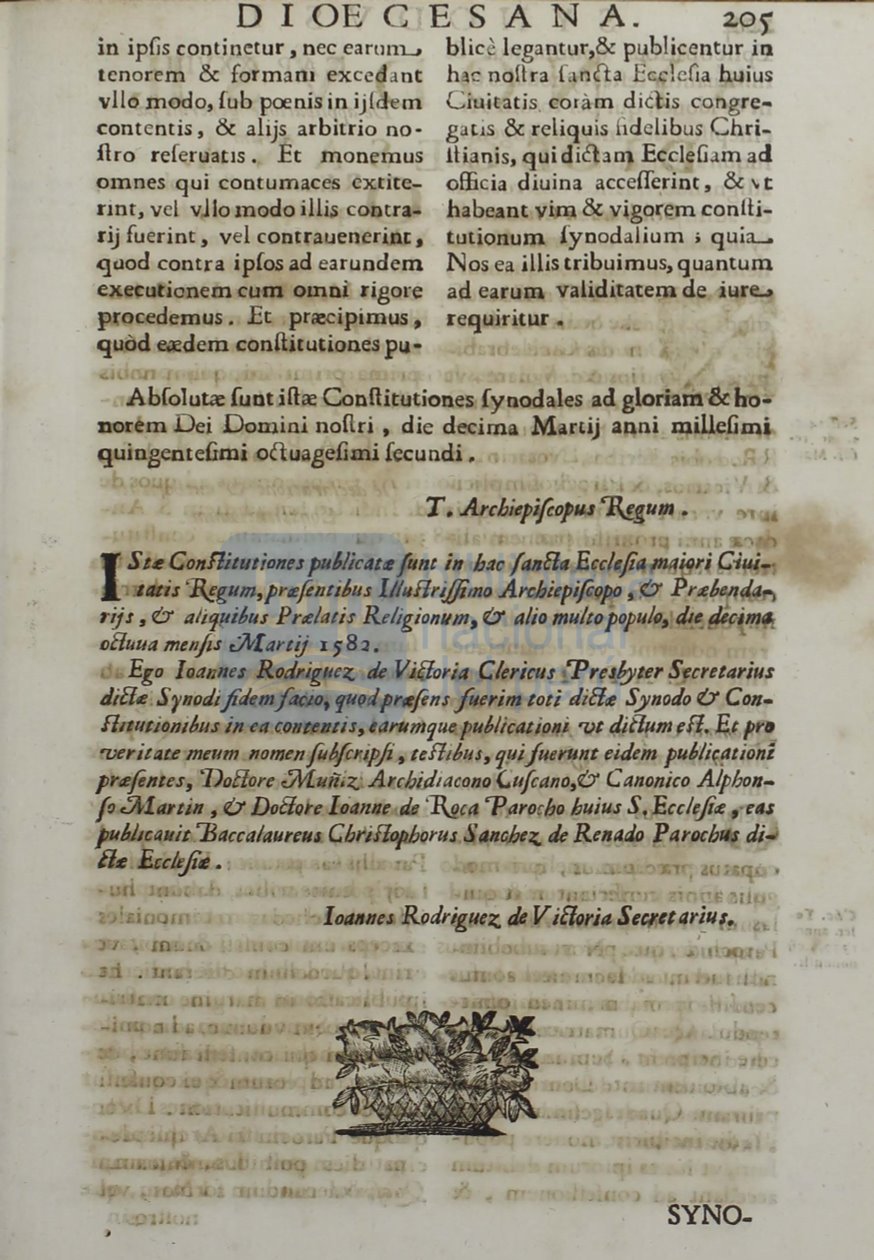 DIOECESANA. 205
in ipſis continetur, nec earum
tenorem & formam excedant
vllo modo, ſub pœnis in ijſdem
contentis, & alijs arbitrio no-
ſtro reſeruatis. Et monemus
omnes qui contumaces extite-
rint, vel vllo modo illis contra-
rij fuerint, vel contrauenerint,
quod contra ipſos ad earundem
executionem cum omni rigore
procedemus. Et præcipimus,
quòd eædem conſtitutiones pu-
blicè legantur, & publicentur in
hac noſtra ſancta Eccleſia huius
Ciuitatis coràm dictis congre-
gatis & reliquis fidelibus Chri-
ſtianis, qui dictam Eccleſiam ad
officia diuina acceſſerint, & vt
habeant vim & vigorem conſti-
tutionum ſynodalium; quia
Nos ea illis tribuimus, quantum
ad earum validitatem de iure
requiritur.
Abſolutæ ſunt iſtæ Conſtitutiones ſynodales ad gloriam & ho-
norem Dei Domini noſtri, die decima Martij anni milleſimi
quingenteſimi octuageſimi ſecundi.
T. Archiepiſcopus Regum.
IStæ Conſtitutiones publicatæ ſunt in hac ſancta Eccleſia maiori Ciui-
tatis Regum, præſentibus Illuſtriſſimo Archiepiſcopo, & Præbenda-
rijs, & aliquibus Prælatis Religionum, & alio multo populo, die decima
octuua menſis Martij 1582.
Ego Ioannes Rodriguez de Victoria Clericus Presbyter Secretarius
dictæ Synodi fidem facio, quod præſens fuerim toti dictæ Synodo & Con-
ſtitutionibus in ea contentis, earumque publicationi vt dictum eſt. Et pro
veritate meum nomen ſubſcripſi, teſtibus, qui fuerunt eidem publicationi
præſentes, Doctore Muñiz Archidiacono Cuſcano, & Canonico Alphon-
ſo Martin, & Doctore Ioanne de Roca Parocho huius S. Eccleſiæ, eas
publicauit Baccalaureus Chriſtophorus Sanchez de Renado Parochus di-
ctæ Eccleſiæ.
Ioannes Rodriguez de Victoria Secretarius.
SYNO-